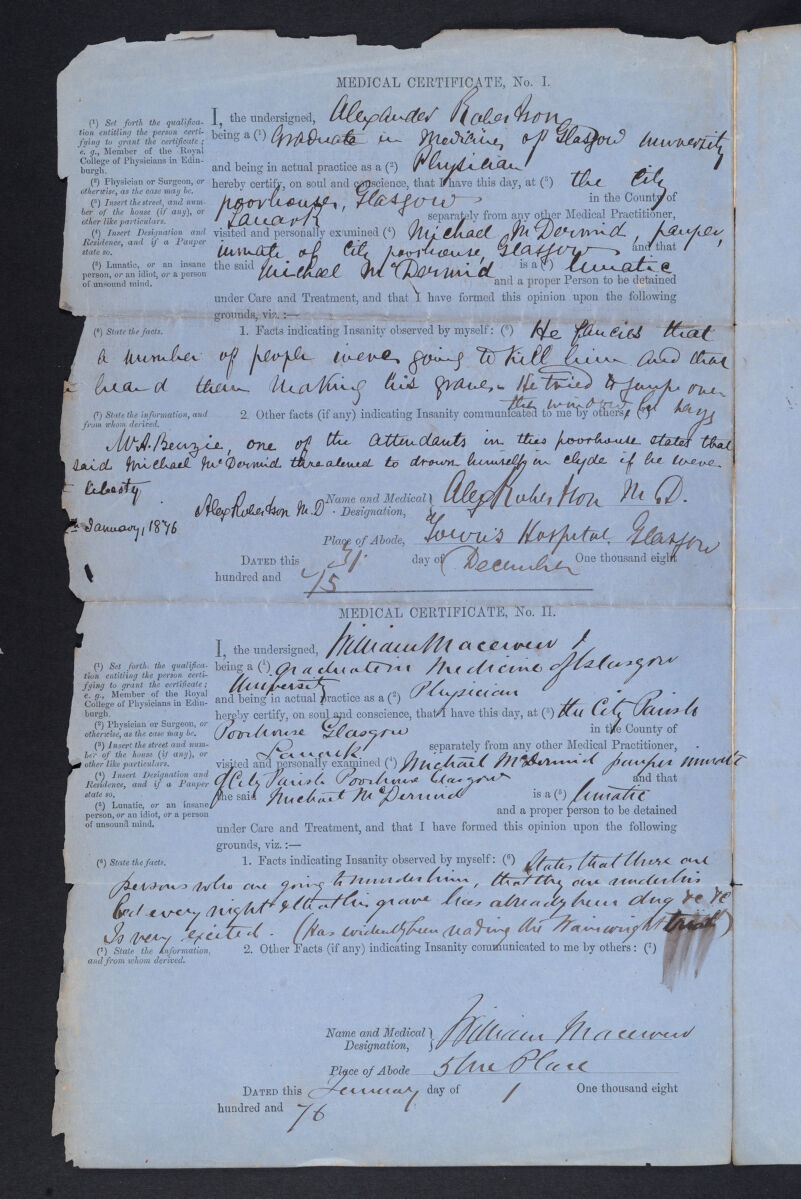 MEDICAL CERTIFICATE, No. I.
(1) Set forth the qualifica-
tion entitling the person certi-
fying to grant the certificate;
e. g., Member of the Royal
College of Physicians in Edin-
burgh.
(2) Physician or Surgeon, or
otherwise, as the case may be.
(3) Insert the street, and num-
ber of the house (if any), or
other like particulars.
(4) Insert Designation and
Residence, and if a Pauper
state so.
(5) Lunatic, or an insane
person, or an idiot, or a person
of unsound mind.
I, the undersigned, Alexander Robertson
being a (1) Graduate in Medicine, of Glasgow University
and being in actual practice as a (2) Physician
hereby certify, on soul and conscience, that I have this day, at (3) the City
poorhouse, Glasgow in the County of
Lanark separately from any other Medical Practitioner,
visited and personally examined (4) Michael McDermid, pauper,
inmate of City poorhouse, Glasgow and that
the said Michael McDermid is a (5) lunatic
and a proper Person to be detained
under Care and Treatment, and that I have formed this opinion upon the following
grounds, viz. :—
(6) State the facts.
1. Facts indicating Insanity observed by myself: (6) He fancies that
a number of people were going to kill him and that
heard them making his grave. He tried to jump over
the window he says
(7) State the information, and
from whom derived.
2. Other facts (if any) indicating Insanity communicated to me by others: (7)
Benzie, one of the attendants in this poorhouse states that
said Michael McDermid threatened to drown himself in Clyde if he were
liberty
Alex Robertson M.D
January, 1876
Name and Medical Designation, Alex Robertson M.D.
Place of Abode, Town's Hospital, Glasgow
DATED this 31 day of December One thousand eight
hundred and 75
MEDICAL CERTIFICATE, No. II.
(1) Set forth the qualifica-
tion entitling the person certi-
fying to grant the certificate;
e. g., Member of the Royal
College of Physicians in Edin-
burgh.
(2) Physician or Surgeon, or
otherwise, as the case may be.
(3) Insert the street and num-
ber of the house (if any), or
other like particulars.
(4) Insert Designation and
Residence, and if a Pauper
state so.
(5) Lunatic, or an insane
person, or an idiot, or a person
of unsound mind.
I, the undersigned, William Macewen
being a (1) graduate in Medicine of Glasgow
University
and being in actual practice as a (2) Physician
hereby certify, on soul and conscience, that I have this day, at (3) the City Parish
Poorhouse Glasgow in the County of
Lanark separately from any other Medical Practitioner,
visited and personally examined (4) Michael McDermid pauper inmate
of City Parish Poorhouse Glasgow and that
the said Michael McDermid is a (5) lunatic
and a proper person to be detained
under Care and Treatment, and that I have formed this opinion upon the following
grounds, viz. :—
(6) State the facts.
1. Facts indicating Insanity observed by myself: (6) States that there are
persons who are going to murder him, that they are under his
bed every night & that his grave has already been dug &c &c
Is very excited. (Has evidently been reading the Wainwright trial)
(7) State the information,
and from whom derived.
2. Other Facts (if any) indicating Insanity communicated to me by others: (7)
Name and Medical Designation, William Macewen
Place of Abode Place
DATED this January day of 1 One thousand eight
hundred and 76